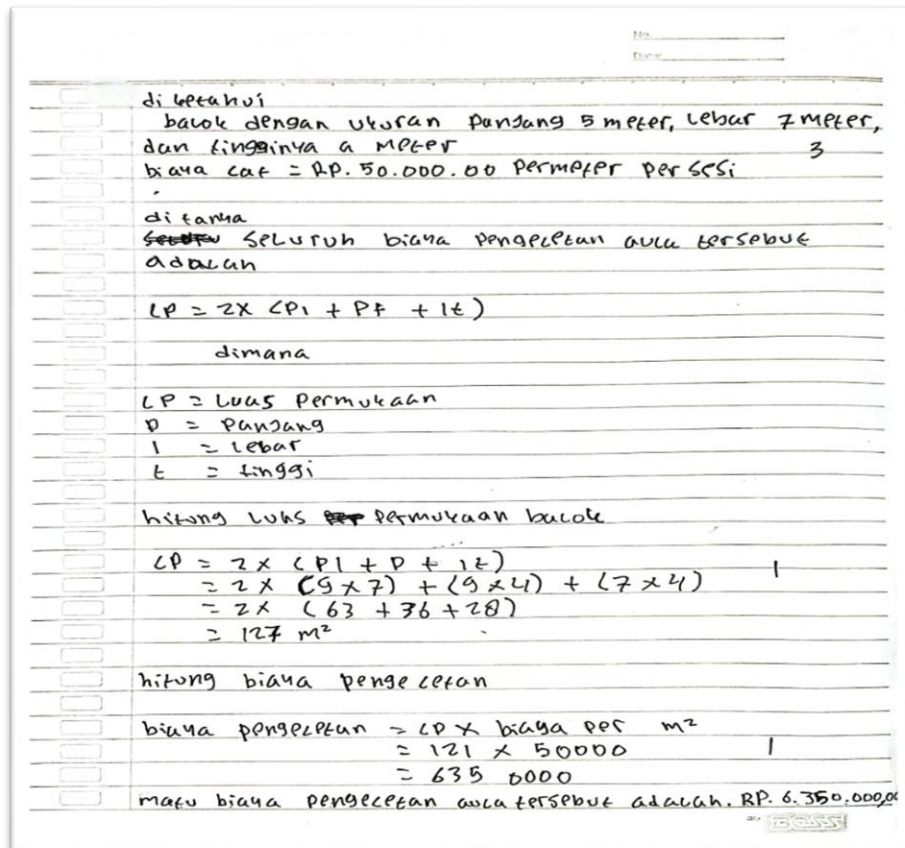 No.
Date
di ketahui
balok dengan ukuran panjang 5 meter, lebar 7 meter,
dan tingginya a meter
3
biaya cat = RP. 50.000.00 permeter per sesi
di tanya
seluruh biaya pengecetan aula tersebut
adalah
LP = 2x (Pl + Pt + lt)
dimana
LP = Luas Permukaan
P = Panjang
l = lebar
t = tinggi
hitong luas permukaan balok
LP = 2 x (Pl + P + lt)
1
= 2 x (9 x 7) + (9 x 4) + (7 x 4)
= 2 x (63 + 36 + 28)
= 127 m²
hitong biaya penge cetan
biaya pengecetan = LP x biaya per m²
= 121 x 50000
1
= 635 0000
maku biaya pengecetan aula tersebut adalah. RP. 6.350.000,00